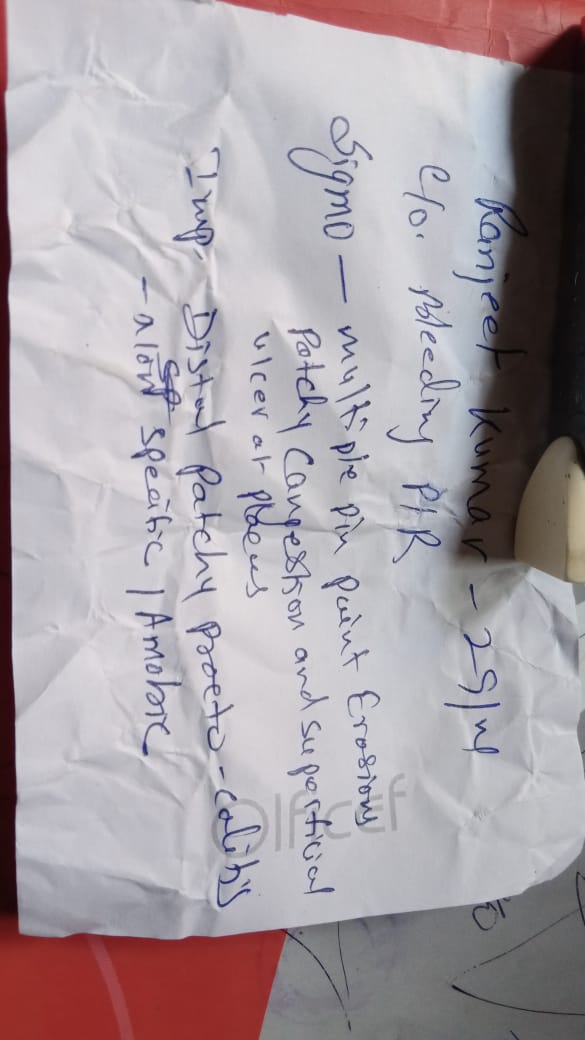 Ranjeet Kumar - 29/M
C/o. Bleeding P/R
Sigmo - multiple pin point Erosions
Patchy Congestion and superficial
ulcer at places
Imp. Distal Patchy Procto-colitis
- specific / Amobic